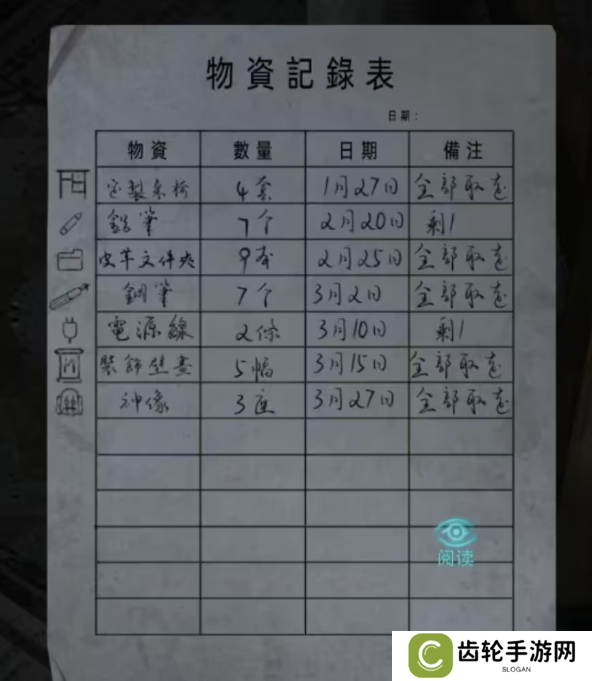 物資記錄表
日期：
物資 數量 日期 備注
定製桌椅 4套 1月27日 全部取走
鉛筆 7个 2月20日 剩1
皮革文件夾 9本 2月25日 全部取走
鋼筆 7个 3月2日 全部取走
電源線 2條 3月10日 剩1
裝飾壁畫 5幅 3月15日 全部取走
神像 3座 3月27日 全部取走
阅读
齿轮手游网
SLOGAN